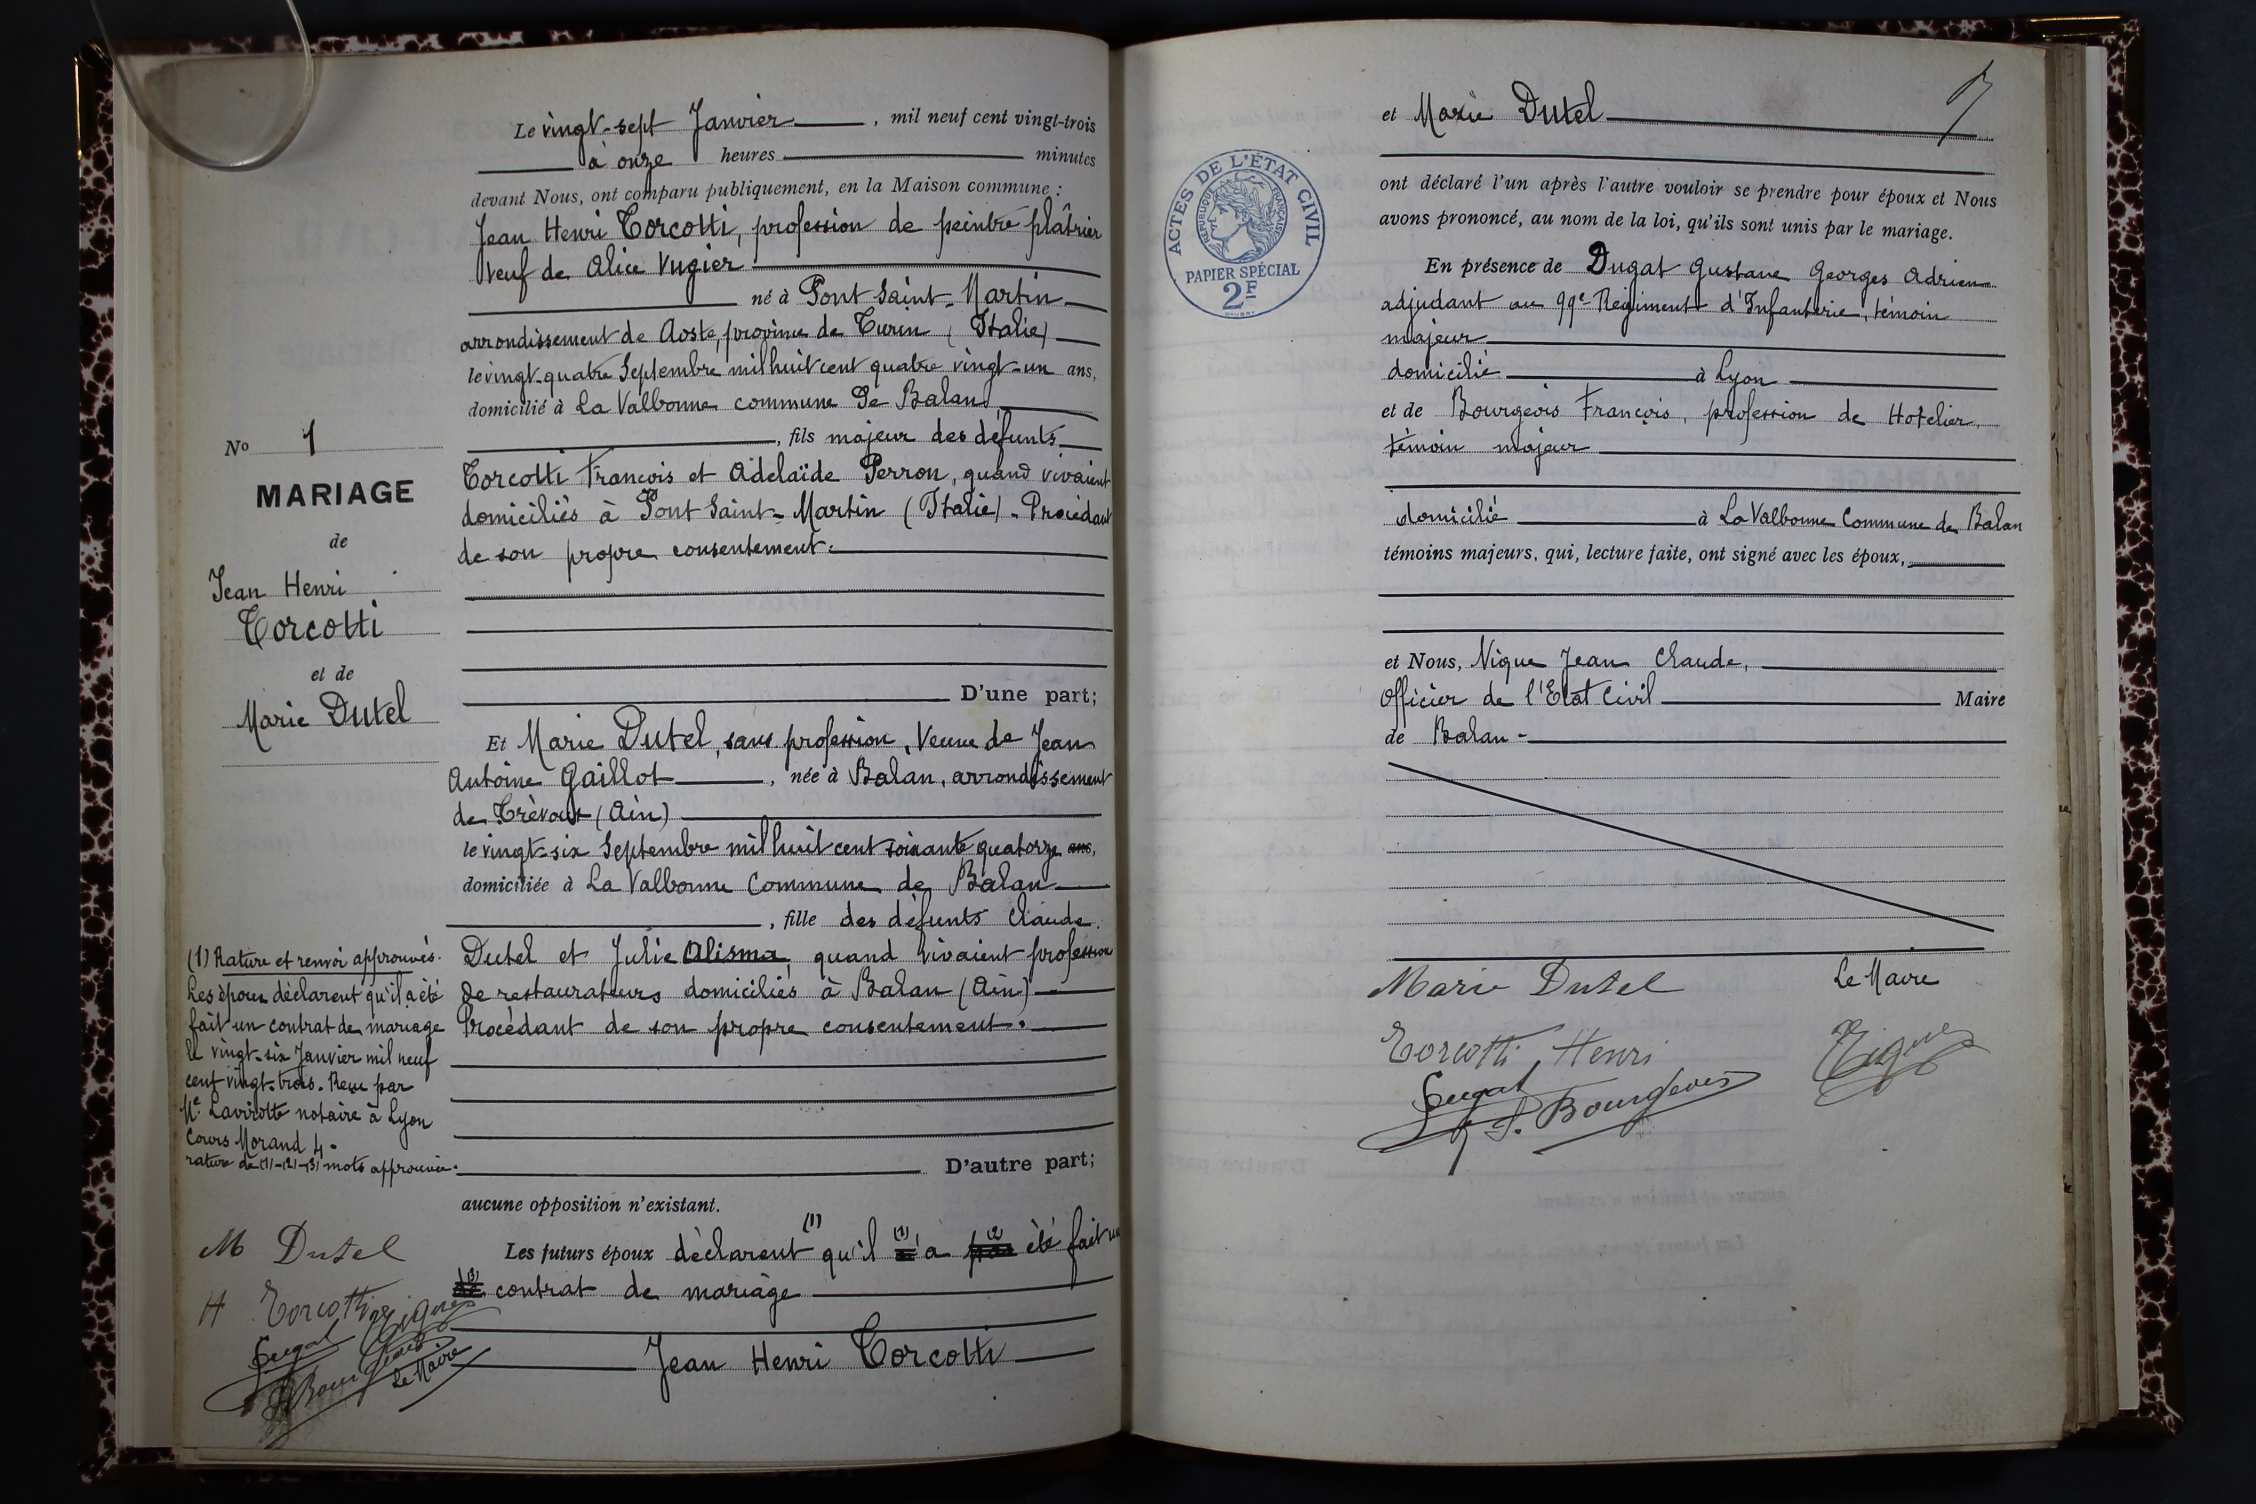 Le vingt-sept Janvier, mil neuf cent vingt-trois
à onze heures minutes
devant Nous, ont comparu publiquement, en la Maison commune :
Jean Henri Torcotti, profession de peintre plâtrier
Veuf de Alice Vugier
né à Pont Saint-Martin
arrondissement de Aoste, province de Turin (Italie)
le vingt-quatre Septembre mil huit cent quatre vingt-un ans,
domicilié à La Valbonne commune de Balan,
, fils majeur des défunts
Torcotti François et Adelaïde Perron, quand vivaient
domiciliés à Pont Saint-Martin (Italie) - Procédant
de son propre consentement.
D'une part;
Et Marie Dutel, sans profession, Veuve de Jean
Antoine Gaillot, née à Balan, arrondissement
de Trévoux (Ain)
le vingt-six Septembre mil huit cent soixante quatorze ans,
domiciliée à La Valbonne Commune de Balan
, fille des défunts Claude
Dutel et Julie Alisma, quand vivaient profession
de restaurateurs domiciliés à Balan (Ain)
Procédant de son propre consentement.
D'autre part;
aucune opposition n'existant.
Les futurs époux déclarent (1) qu'il (1) a pas (2) été fait un
de (3) contrat de mariage
Jean Henri Torcotti
No 1
MARIAGE
de
Jean Henri
Torcotti
et de
Marie Dutel
(1) Rature et renvoi approuvés.
Les époux déclarent qu'il a été
fait un contrat de mariage
le vingt-six Janvier mil neuf
cent vingt-trois. Reçu par
Me Lavirotte notaire à Lyon
Cours Morand 4.
rature de (1)-(2)-(3) mots approuvée.
M Dutel
H Torcotti
Nique
Dugat
Bourgeois
Le Maire
et Marie Dutel
ont déclaré l'un après l'autre vouloir se prendre pour époux et Nous
avons prononcé, au nom de la loi, qu'ils sont unis par le mariage.
ACTES DE L'ÉTAT CIVIL
RÉPUBLIQUE FRANÇAISE
PAPIER SPÉCIAL
2F
En présence de Dugat Gustave Georges Adrien
adjudant au 99e Régiment d'Infanterie, témoin
majeur
domicilié à Lyon
et de Bourgeois François, profession de Hotelier,
témoin majeur
domicilié à La Valbonne Commune de Balan
témoins majeurs, qui, lecture faite, ont signé avec les époux,
et Nous, Nique Jean Claude,
Officier de l'Etat Civil Maire
de Balan -
Marie Dutel Le Maire
Torcotti Henri Nique
Dugat
F. Bourgeois